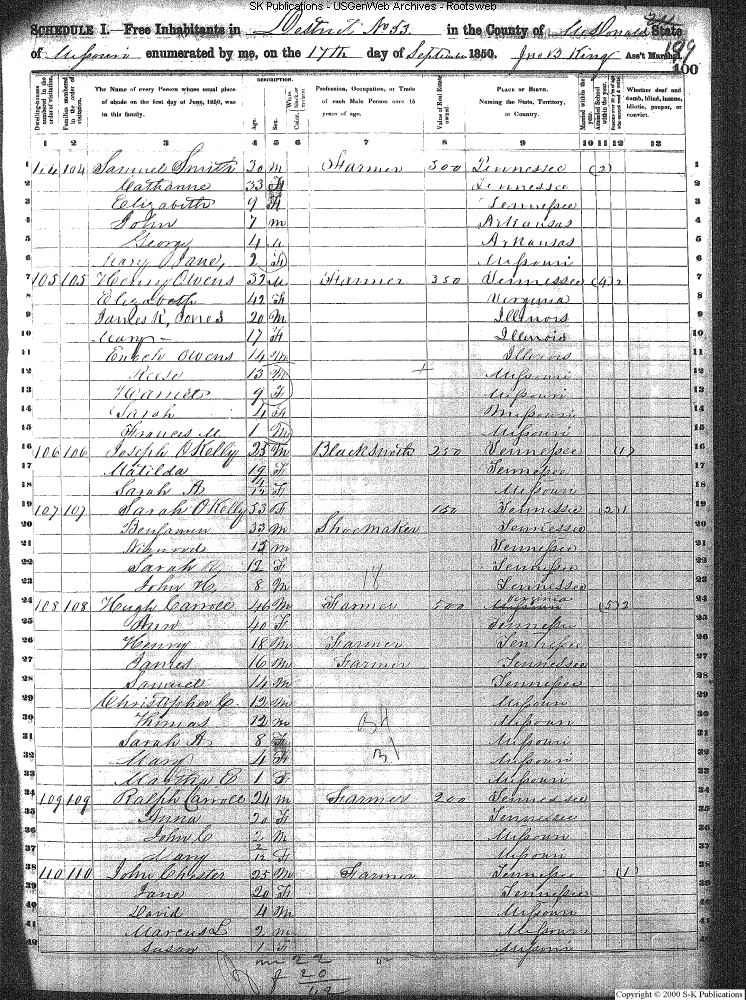 SK Publications - USGenWeb Archives - Rootsweb
SCHEDULE I.—Free Inhabitants in District No 53. in the County of McDonald State
of Missouri enumerated by me, on the 17th day of September 1850. Jno B King Ass't Marshal. 199
100
DESCRIPTION.
Dwelling-houses numbered in the order of visitation. Families numbered in the order of visitation. The Name of every Person whose usual place of abode on the first day of June, 1850, was in this family. Age. Sex. White, black, or mulatto. Color. Profession, Occupation, or Trade of each Male Person over 15 years of age. Value of Real Estate owned PLACE OF BIRTH. Naming the State, Territory, or Country. Married within the year. Attended School within the year. Whether deaf and dumb, blind, insane, idiotic, pauper, or convict.
1 2 3 4 5 6 7 8 9 10 11 12 13
1 104 104 Samuel Smith 30 M Farmer 300 Tennessee (2) 1
2 Catharine 33 F Tennessee 2
3 Elizabeth 9 F Tennessee 3
4 John 7 M Arkansas 4
5 George 4 M Arkansas 5
6 Mary Jane, 2 F Missouri 6
7 105 105 Henry Owens 32 M Farmer 350 Tennessee (4) 2 7
8 Elizabeth 42 F Virginia 8
9 James K, Jones 20 M Illinois 9
10 Mary 17 F Illinois 10
11 Enoch Owens 14 M Illinois 11
12 Reese 13 M Missouri 12
13 Harriet 9 F Missouri 13
14 Sarah 4 F Missouri 14
15 Frances M 1 M Missouri 15
16 106 106 Joseph OKelly 25 M Blacksmith 250 Tennessee (1) 16
17 Matilda 19 F Tennessee 17
18 Sarah A 4/12 F Missouri 18
19 107 107 Sarah OKelly 53 F 150 Tennessee (2) 1 19
20 Benjamin 33 M Shoemaker Tennessee 20
21 Nimrod 15 M Tennessee 21
22 Sarah 12 F Tennessee 22
23 John H. 8 M Tennessee 23
24 108 108 Hugh Carroll 46 M Farmer 500 Virginia (5) 2 24
25 Ann 40 F Tennessee 25
26 Henry 18 M Farmer Tennessee 26
27 James 16 M Farmer Tennessee 27
28 Samuel 14 M Tennessee 28
29 Christopher C. 12 M Missouri 29
30 Thomas 12 M Missouri 30
31 Sarah A 8 F Missouri 31
32 Mary 4 F Missouri 32
33 Martha E 1 F Missouri 33
34 109 109 Ralph Carroll 24 M Farmer 200 Tennessee 34
35 Anna 20 F Tennessee 35
36 John C 2 M Missouri 36
37 Mary 2/12 F Missouri 37
38 110 110 John Chester 25 M Farmer Tennessee (1) 38
39 Jane 20 F Tennessee 39
40 David 4 M Missouri 40
41 Marcus L 2 M Missouri 41
42 Susan 1 F Missouri 42
m 22
f 20
42
Copyright © 2000 S-K Publications